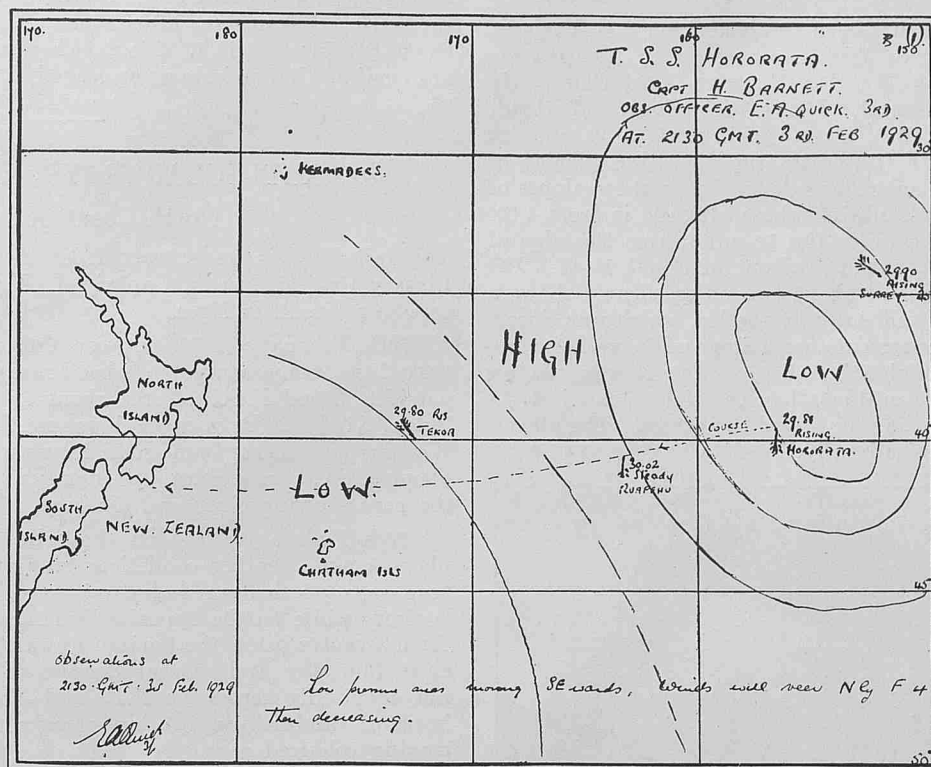 170.
180
170
160
150
B (1)
T. S. S. HORORATA.
CAPT H. BARNETT.
OBS. OFFICER. E. A. QUICK. 3RD.
AT. 2130 GMT. 3RD. FEB 1929
30
KERMADECS.
2990
RISING
SURREY.
35
HIGH
LOW
NORTH
ISLAND
29.80 RIS
TEKOA
COURSE
29.88
RISING.
HORORATA.
40
30.02
Steady
RUAPEHU
LOW.
SOUTH
ISLAND
NEW. ZEALAND.
CHATHAM ISLS
45
observations at
2130. GMT. 3rd Feb. 1929
Low pressure areas moving SE wards, winds will veer N'ly F 4
then decreasing.
EAQuick
3/
50